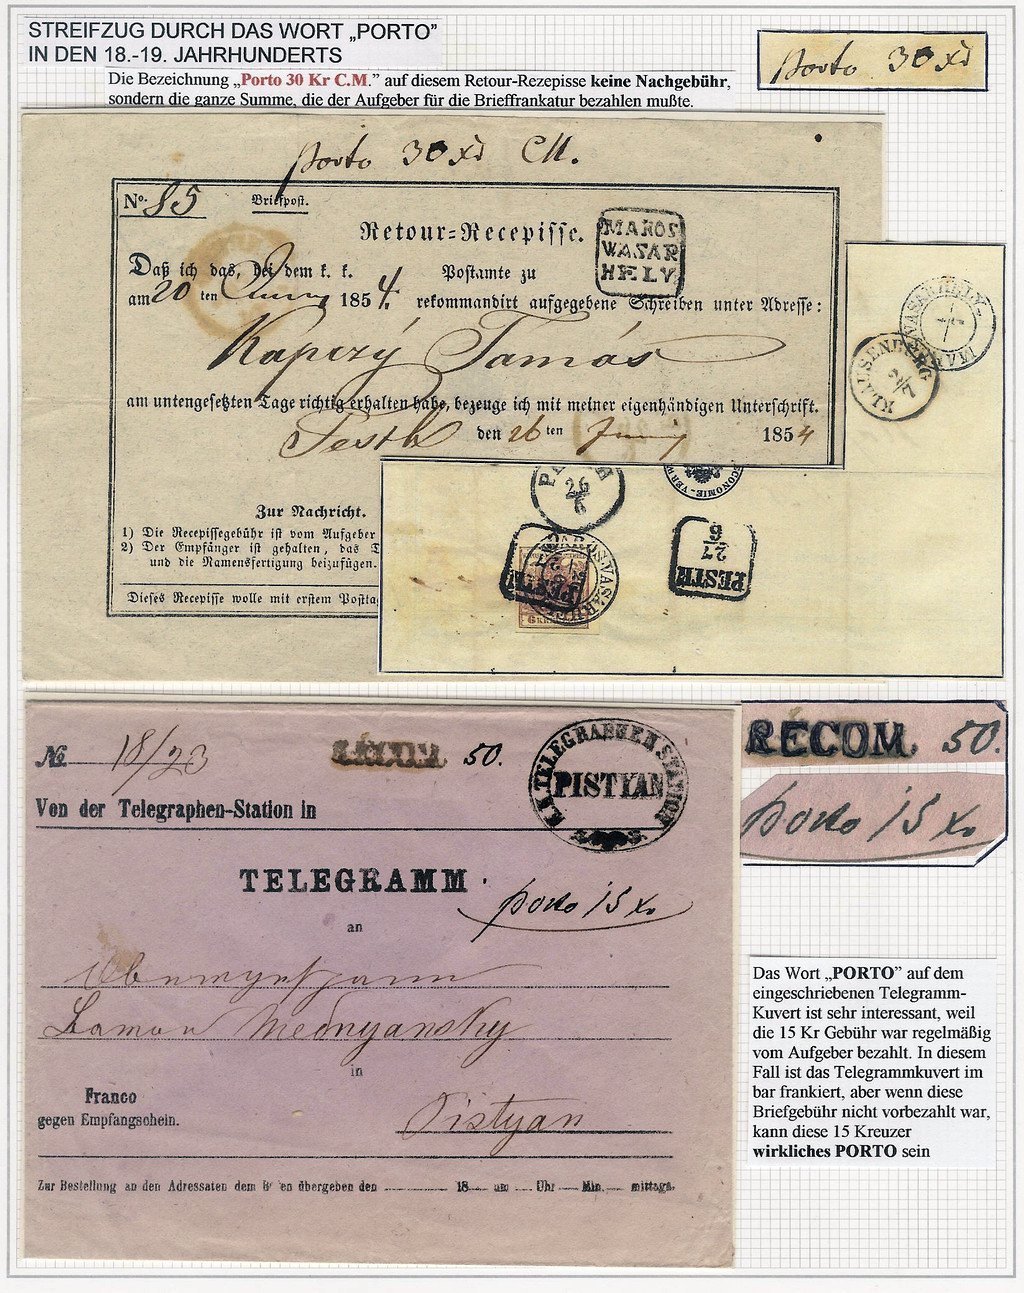 STREIFZUG DURCH DAS WORT „PORTO”
IN DEN 18.-19. JAHRHUNDERTS
Die Bezeichnung „Porto 30 Kr C.M.” auf diesem Retour-Rezepisse keine Nachgebühr,
sondern die ganze Summe, die der Aufgeber für die Brieffrankatur bezahlen mußte.
porto 30 xr
porto 30 xr CM.
No. 85 Briefpost.
Retour=Recepisse.
MAROS
WASAR
HELY.
Daß ich das, bei dem k. k. Postamte zu
am 20 ten Juny 1854. rekommandirt aufgegebene Schreiben unter Adresse:
Kapczy Tamás
am untengesetzten Tage richtig erhalten habe, bezeuge ich mit meiner eigenhändigen Unterschrift.
Pesth den 26 ten Juny 1854
MAROS VASARHELY
1/7
KLAUSENBURG
2/7
Zur Nachricht.
1) Die Recepissegebühr ist vom Aufgeber
2) Der Empfänger ist gehalten, das
und die Namensfertigung beizufügen.
Dieses Recepisse wolle mit erstem Postta
26
6
ECONOMIE-VERW
MAROS-VASARHELY
PESTH
27
6
PESTH
27
6
No. 18/23 RECOM. 50.
K.K. TELEGRAPHEN STATION
PISTYAN
Von der Telegraphen-Station in
TELEGRAMM
porto 15 xr
an
Mednyansky
in
Franco
gegen Empfangschein.
Pistyan
Zur Bestellung an den Adressaten dem B en übergeben den 18 um Uhr Min. mittags.
RECOM. 50.
porto 15 xr
Das Wort „PORTO” auf dem
eingeschriebenen Telegramm-
Kuvert ist sehr interessant, weil
die 15 Kr Gebühr war regelmäßig
vom Aufgeber bezahlt. In diesem
Fall ist das Telegrammkuvert im
bar frankiert, aber wenn diese
Briefgebühr nicht vorbezahlt war,
kann diese 15 Kreuzer
wirkliches PORTO sein